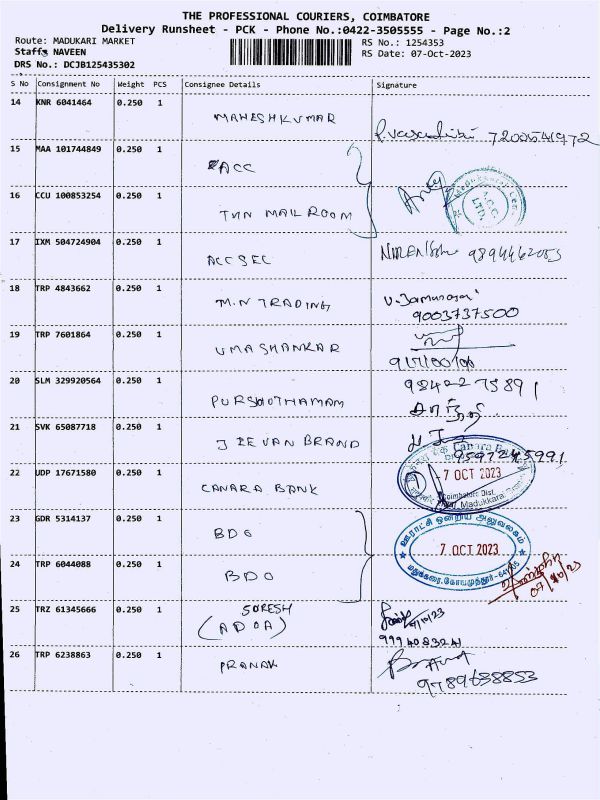 THE PROFESSIONAL COURIERS, COIMBATORE
Delivery Runsheet - PCK - Phone No.:0422-3505555 - Page No.:2
Route: MADUKARI MARKET
RS No.: 1254353
Staffs NAVEEN
RS Date: 07-Oct-2023
DRS No.: DCJB125435302
S No Consignment No Weight PCS Consignee Details Signature
14 KNR 6041464 0.250 1 MAHESHKUMAR
7200541972
15 MAA 101744849 0.250 1 ACC
16 CCU 100853254 0.250 1 TMN MAILROOM
A.C.C. LTD.
17 IXM 504724904 0.250 1 ACCSEC 9894462053
18 TRP 4843662 0.250 1 M.N TRADING
9003737500
19 TRP 7601864 0.250 1 UMASHANKAR
20 SLM 329920564 0.250 1 PURSHOTHAMAM
9842275891
21 SVK 65087718 0.250 1 JEEVAN BRAND
9597245991
22 UDP 17671580 0.250 1 CANARA BANK
Canara Bank
-7 OCT 2023
Coimbatore Dist.
Madukkarai
23 GDR 5314137 0.250 1 BDO
ஊராட்சி ஒன்றிய அலுவலகம்
7 OCT 2023
மதுக்கரை, கோயமுத்தூர்-641105
24 TRP 6044088 0.250 1 BDO
07/10/23
25 TRZ 61345666 0.250 1 SURESH
(ADOA)
9994083241
26 TRP 6238863 0.250 1 PRANAV
9789638853